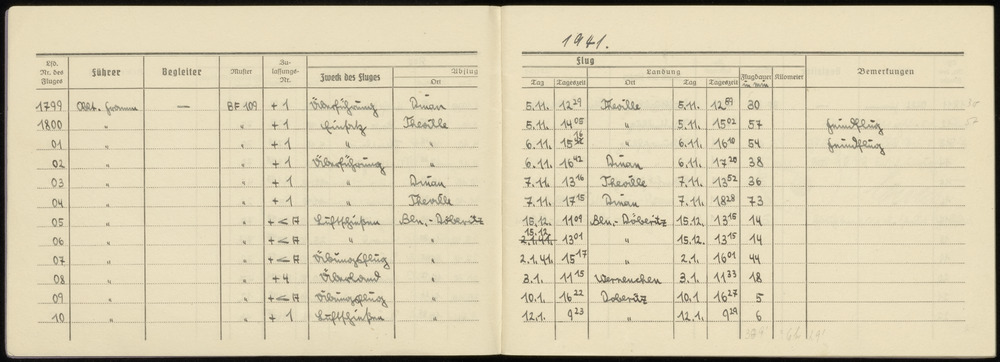 1941.
Lfd. Nr. des Fluges Führer Begleiter Muster Zulassungs-Nr. Zweck des Fluges Abflug Ort Tag Tageszeit
Flug Landung Ort Tag Tageszeit Flugdauer in Min Kilometer Bemerkungen
1799 Oblt. Fromm — BF 109 + 1 Überführung Dinan 5.11. 12 29 Theville 5.11. 12 59 30
1800 " " + 1 Einsatz Theville 5.11. 14 05 " 5.11. 15 02 57 Feindflug
01 " " + 1 " " 6.11. 15 16 " 6.11. 16 10 54 Feindflug
02 " " + 1 Überführung " 6.11. 16 42 Dinan 6.11. 17 20 38
03 " " + 1 " Dinan 7.11. 13 16 Theville 7.11. 13 52 36
04 " " + 1 " Theville 7.11. 17 15 Dinan 7.11. 18 28 73
05 " " Luftschießen Bln.-Döberitz 15.12. 11 09 Bln.-Döberitz 15.12. 13 15 14
06 " " " " 15.12. 2.1.41. 13 01 " 15.12. 13 15 14
07 " " Übungsflug " 2.1.41. 15 17 " 2.1. 16 01 44
08 " " + 4 Überland " 3.1. 11 15 Werneuchen 3.1. 11 33 18
09 " " Übungsflug " 10.1. 16 22 Döberitz 10.1 16 27 5
10 " " + 1 Luftschießen " 12.1. 9 23 " 12.1. 9 29 6